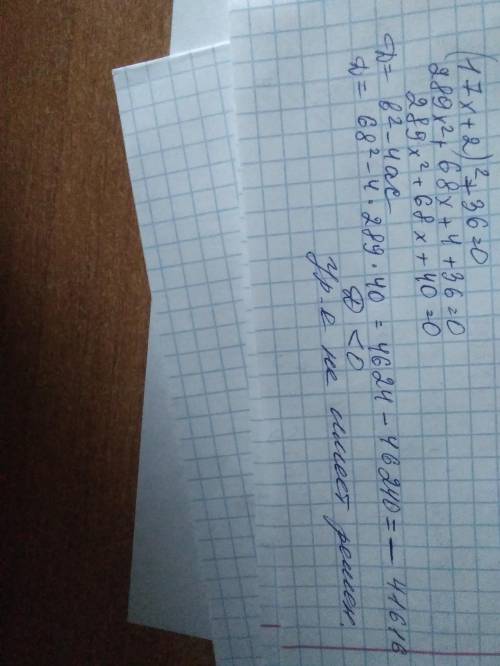 (17x+2)²+36=0
289x²+68x+4+36=0
289x²+68x+40=0
D=b²-4ac
D=68²-4·289·40=4624-46240=-41616
D<0
Ур-е не имеет решен.